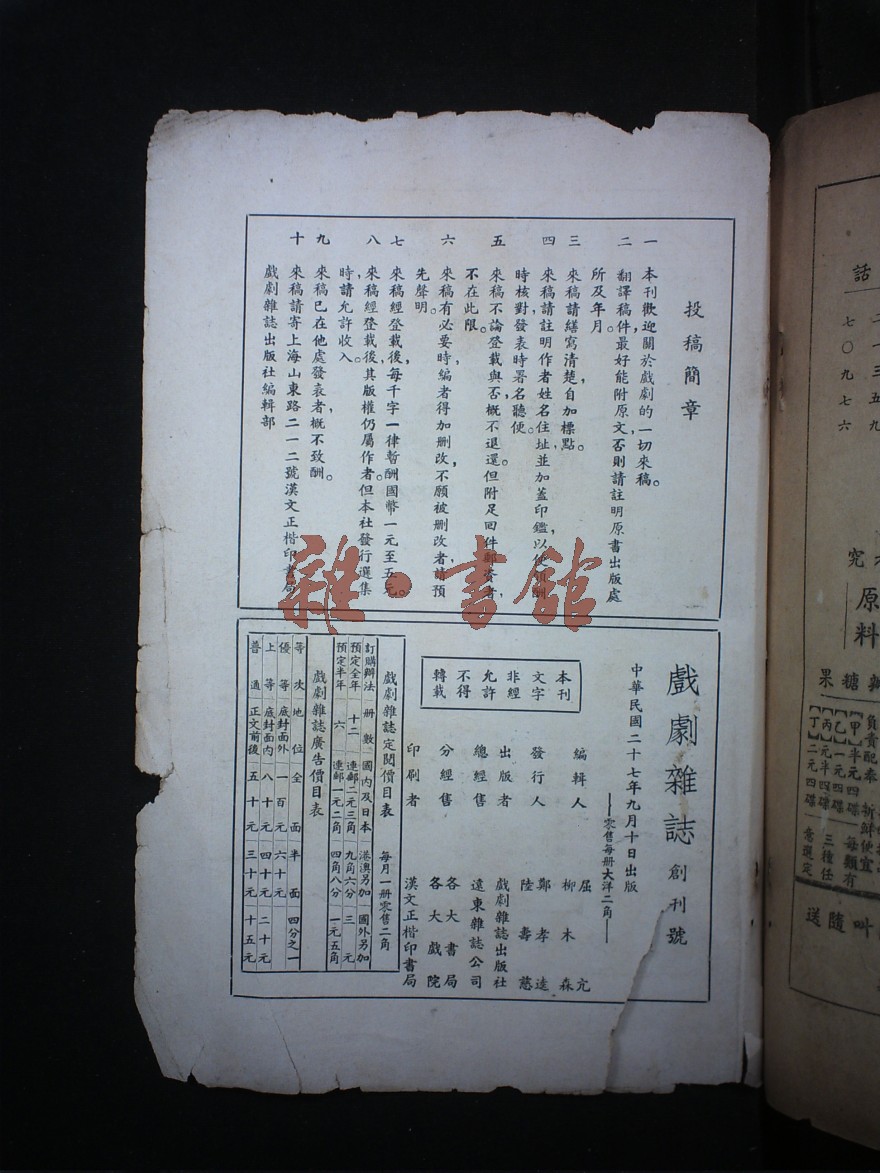 投稿簡章
一 本刊歡迎關於戲劇的一切來稿。
二 翻譯稿件最好能附原文，否則請註明原書出版處
所及年月。
三 來稿請繕寫清楚，自加標點。
四 來稿請註明作者姓名住址並加蓋印鑑，以便領酬
時核對，發表時署名聽便。
五 來稿不論登載與否，概不退還。但附足回件郵資者，
不在此限。
六 來稿有必要時，編者得加刪改，不願被刪改者，請預
先聲明。
七 來稿經登載後，每千字一律暫酬國幣一元至五元。
八 來稿經登載後，其版權仍屬作者，但本社發行選集
時，請允許收入。
九 來稿已在他處發表者，概不致酬。
十 來稿請寄上海山東路二一二號漢文正楷印書局
戲劇雜誌出版社編輯部
戲劇雜誌 創刊號
中華民國二十七年九月十日出版
——零售每册大洋二角——
本刊
文字
非經
允許
不得
轉載
編輯人 屈亢
柳木森
發行人 鄭孝逵
陸壽慈
出版者 戲劇雜誌出版社
總經售 遠東雜誌公司
分經售 各大書局
各大戲院
印刷者 漢文正楷印書局
戲劇雜誌定閱價目表 每月一册零售二角
訂購辦法 册數 國內及日本 港澳另加 國外另加
預定全年 十二 連郵二元三角 九角六分 三元
預定半年 六 連郵一元二角 四角八分 一元五角
戲劇雜誌廣告價目表
等次 地位 全面 半面 四分之一
優等 底封面外 一百元 六十元
上等 底封面內 八十元 四十元 二十元
普通 正文前後 五十元 三十元 十五元
雜·書館
話
二一三五九
七〇九七六
究
原料
糖果
負責配奉
新鮮便宜
甲 半元四碟
乙 一元四碟
丙 元半四碟
丁 二元四碟
每類有
三種任
意選定
叫隨送